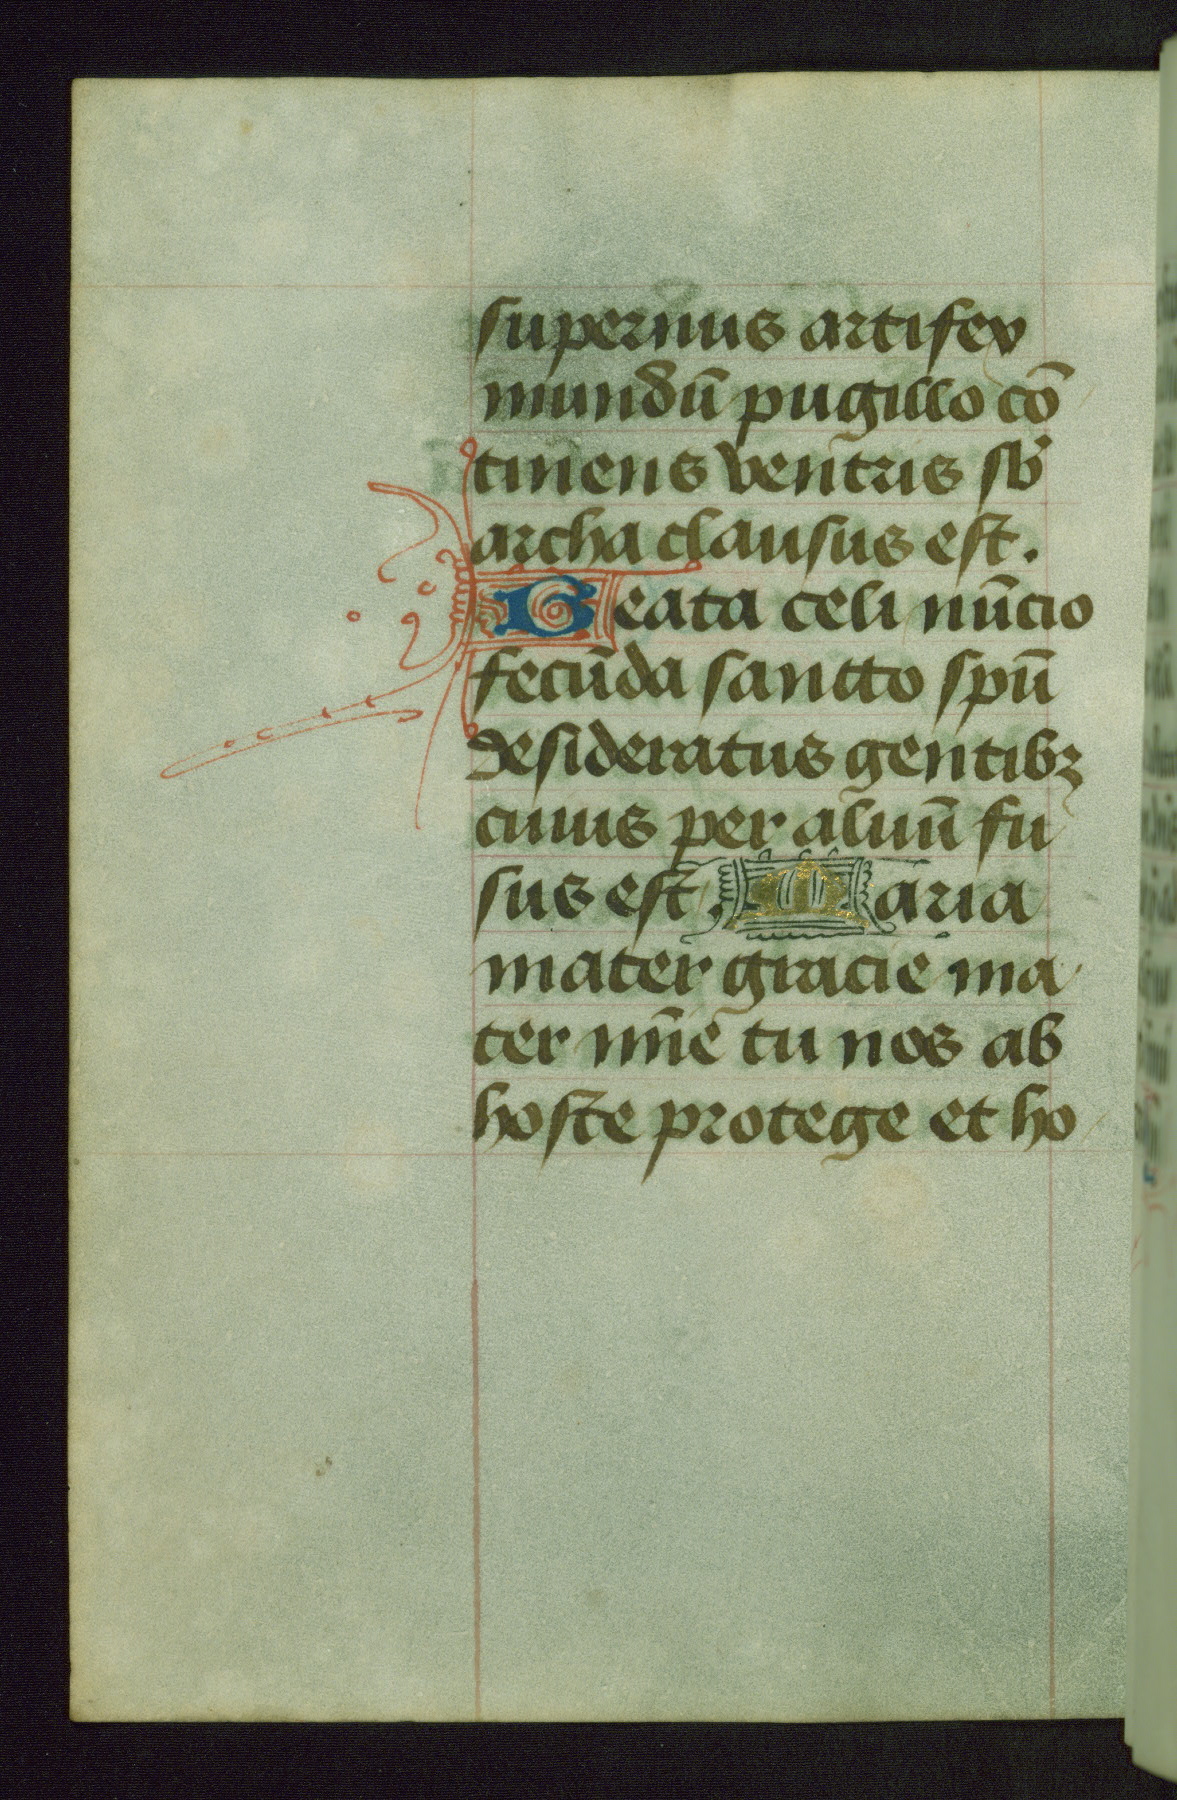 supernus artifex
mundū pugillo cō
tinens ventris sb̄
archa clausus est.
Beata celi nūcio
fecūda sancto spū
desideratus gentibꝫ
cuius per aluū fu
sus est. Maria
mater gracie ma
ter mīe tu nos ab
hoste protege et ho